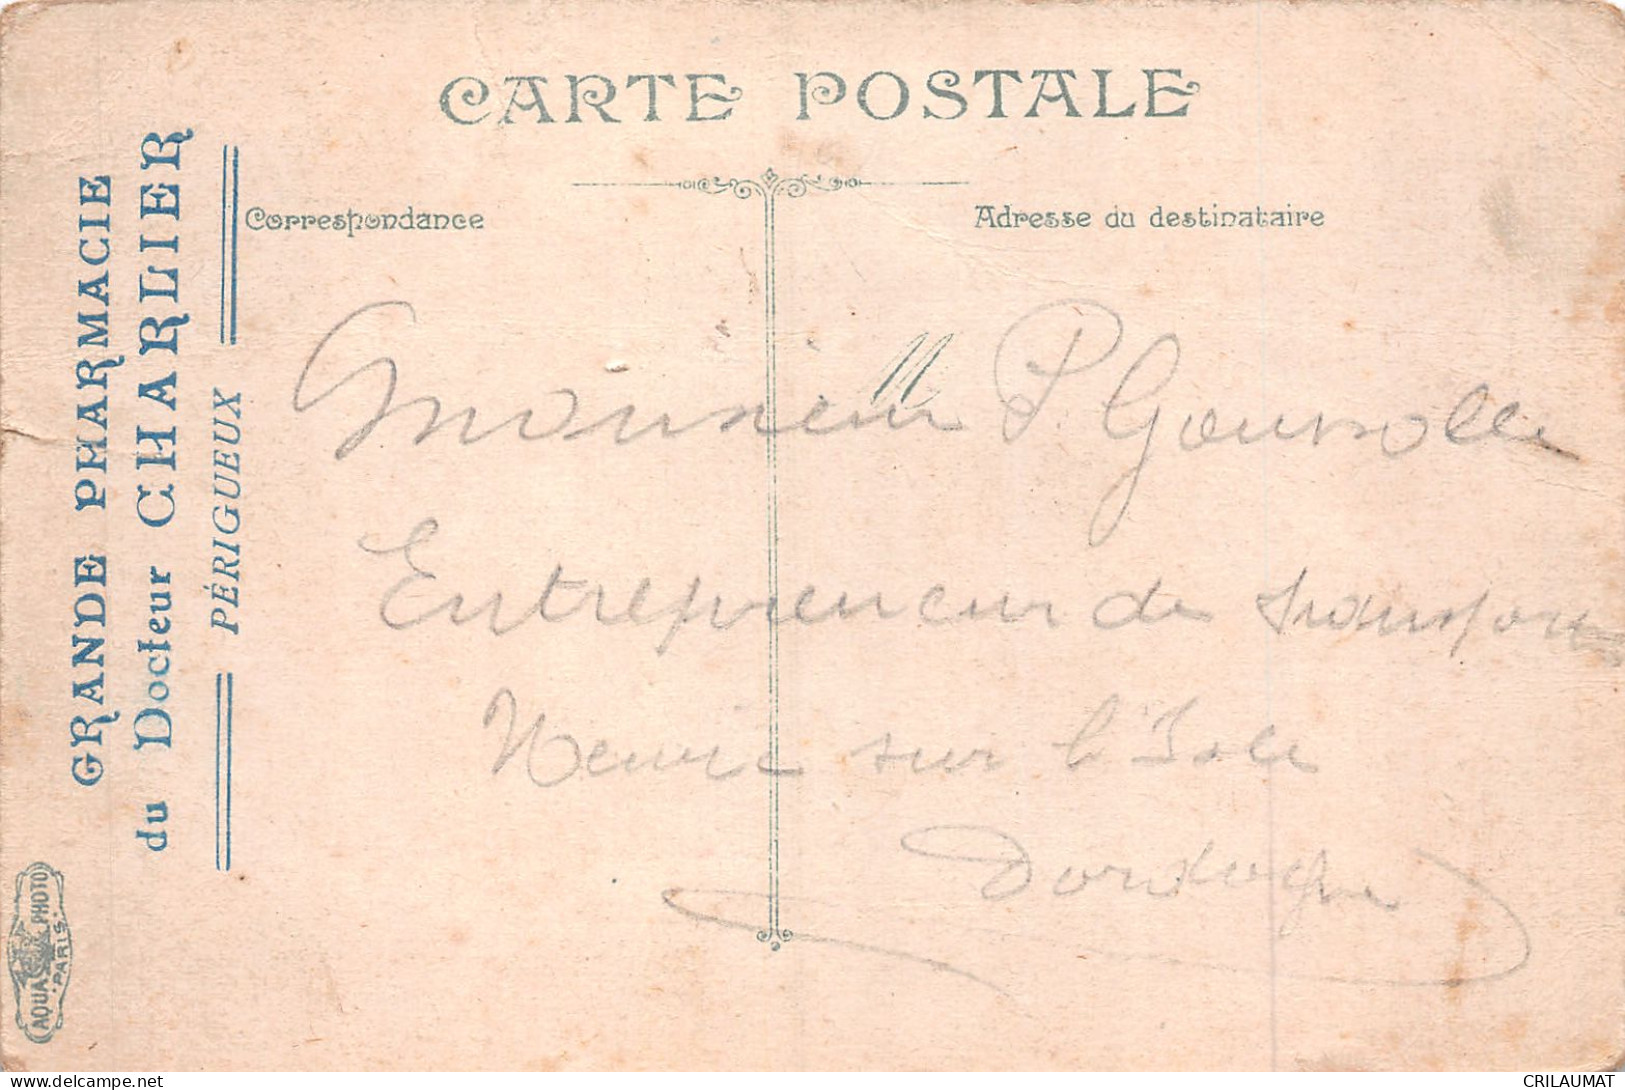 CARTE POSTALE
Correspondance
Adresse du destinataire
GRANDE PHARMACIE
du Docteur CHARLIER
PÉRIGUEUX
Monsieur P. Goursolle
Entrepreneur de transports
Neuvic sur l'Isle
Dordogne
AQUA PHOTO
PARIS
delcampe.net
CRILAUMAT